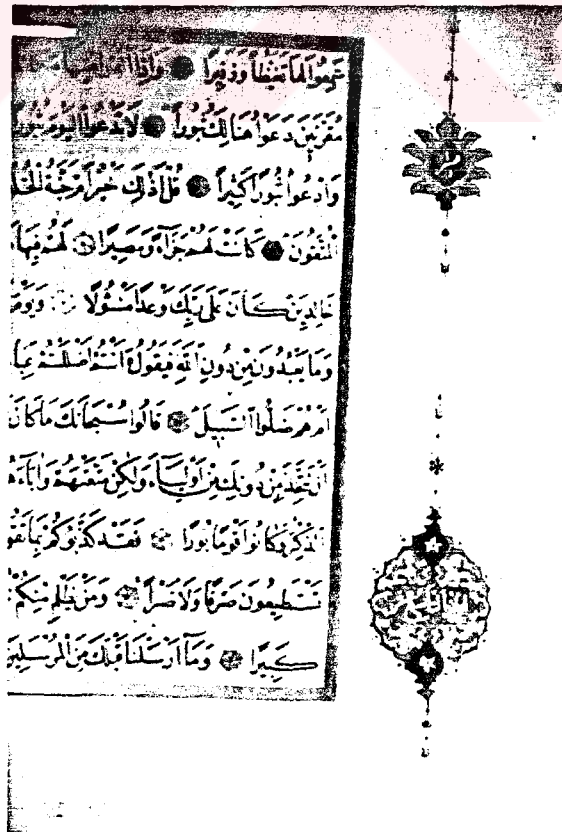 سَمِعُوا لَهَا تَغَيُّظًا وَزَفِيرًا وَإِذَا
مُقَرَّنِينَ دَعَوْا هُنَالِكَ ثُبُورًا لَا تَدْعُوا الْيَوْمَ ثُبُورًا
وَادْعُوا ثُبُورًا كَثِيرًا قُلْ أَذَلِكَ خَيْرٌ أَمْ جَنَّةُ الْخُلْ
الْمُتَّقُونَ كَانَتْ لَهُمْ جَزَاءً وَمَصِيرًا لَهُمْ فِيهَا
خَالِدِينَ كَانَ عَلَى رَبِّكَ وَعْدًا مَسْئُولًا وَيَوْمَ
وَمَا يَعْبُدُونَ مِنْ دُونِ اللَّهِ فَيَقُولُ ءَأَنْتُمْ أَضْلَلْتُمْ عِبَا
أَمْ هُمْ ضَلُّوا السَّبِيلَ قَالُوا سُبْحَانَكَ مَا كَانَ
أَنْ نَتَّخِذَ مِنْ دُونِكَ مِنْ أَوْلِيَاءَ وَلَكِنْ مَتَّعْتَهُمْ وَآبَاءَهُ
الذِّكْرَ وَكَانُوا قَوْمًا بُورًا فَقَدْ كَذَّبُوكُمْ بِمَا تَقُو
تَسْتَطِيعُونَ صَرْفًا وَلَا نَصْرًا وَمَنْ يَظْلِمْ مِنْكُمْ
كَبِيرًا وَمَا أَرْسَلْنَا قَبْلَكَ مِنَ الْمُرْسَلِينَ